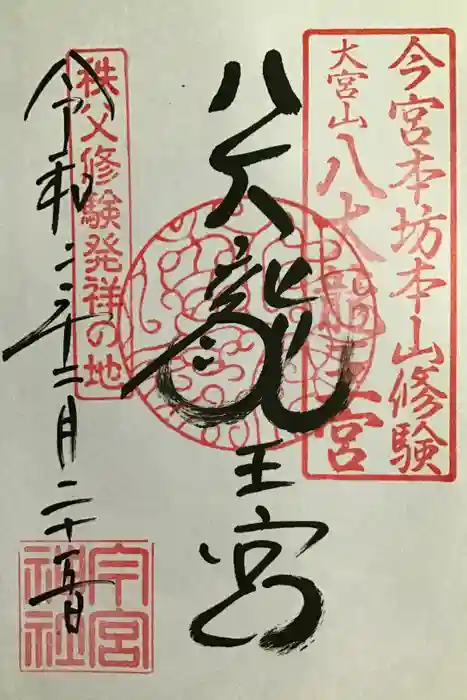 今宮本坊本山修験
大宮山八大龍王宮
八大龍王宮
秩父修験発祥の地
令和二年十二月二十五日
今宮
神社